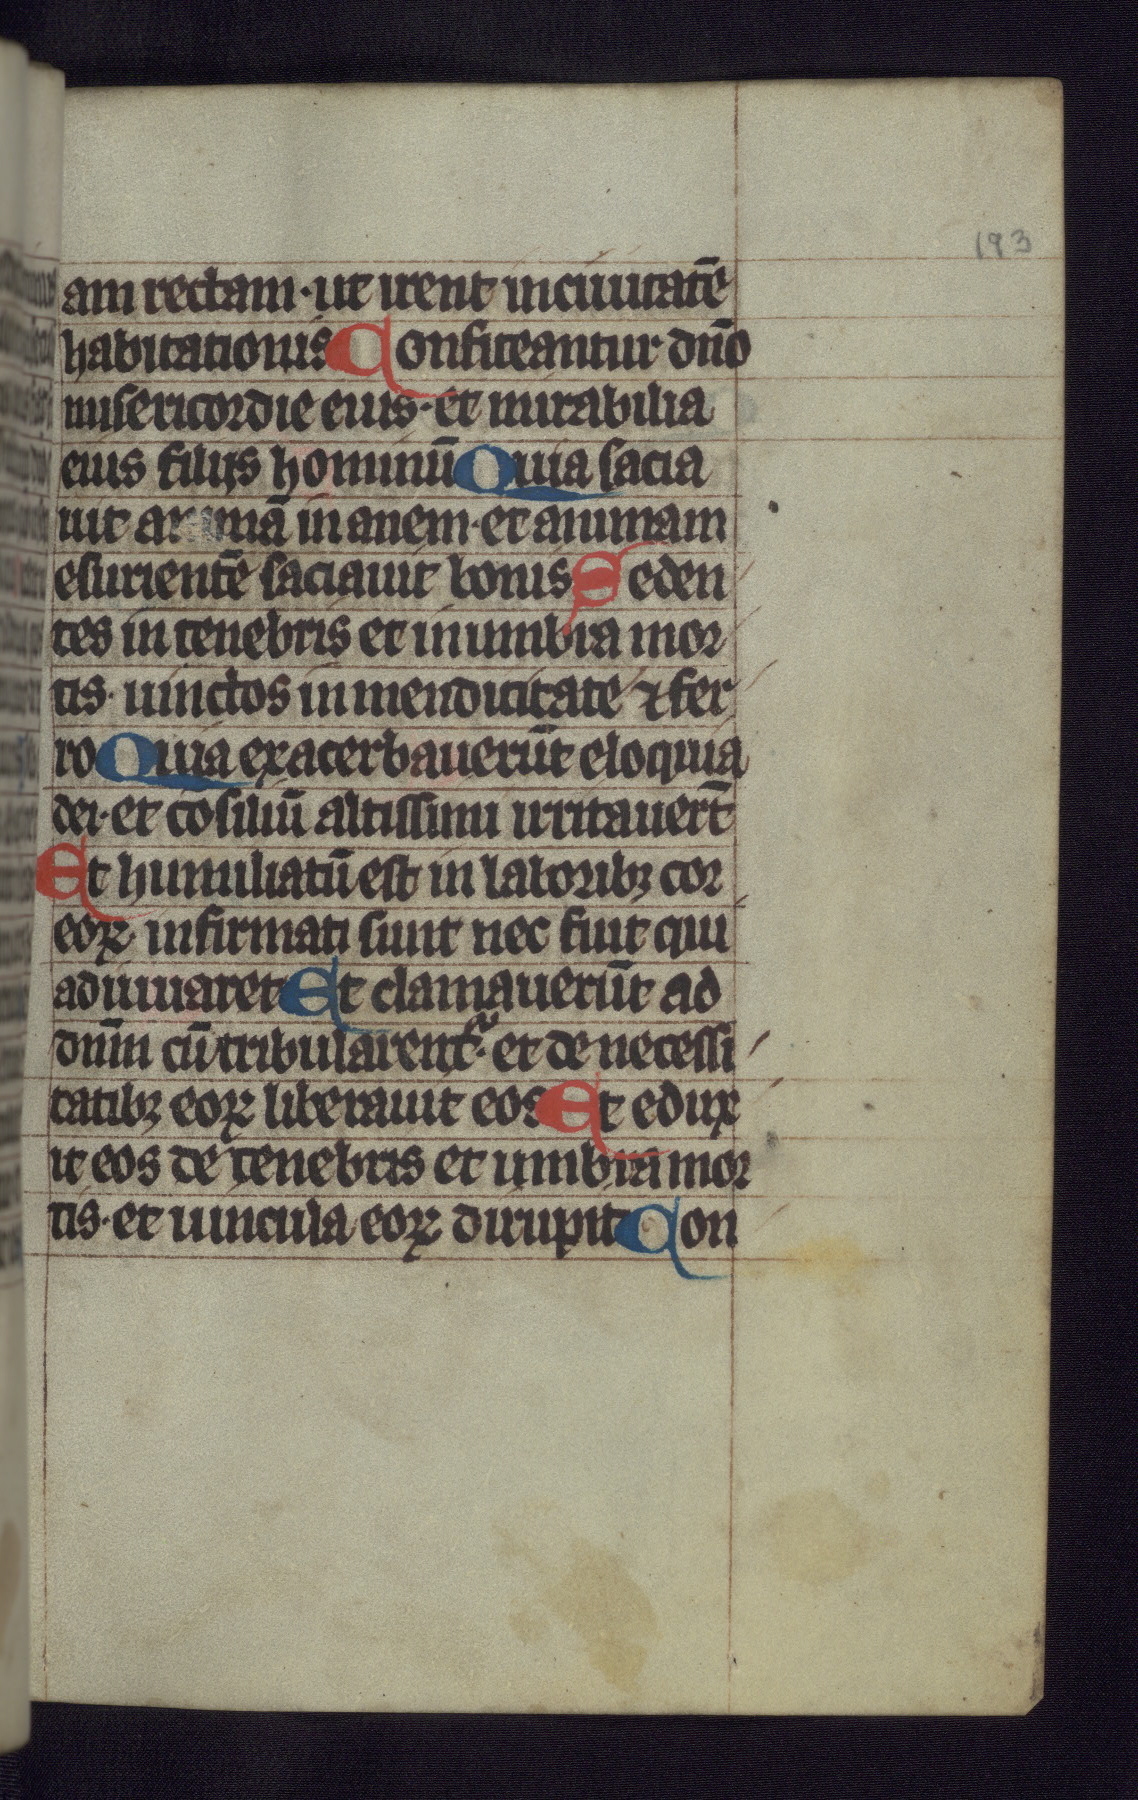 193
am rectam · ut irent in ciuitatē
habitationis Confiteantur dn̄o
misericordie eius · et mirabilia
eius filijs hominū Quia sacia
uit animā inanem · et animam
esurientē saciauit bonis Seden
tes in tenebris et in umbra mor
tis · uinctos in mendicitate ⁊ fer
ro Quia exacerbauerūt eloquia
dei · et cōsiliū altissimi irritauerūt
Et humiliatū est in laboribꝫ cor
eoꝝ · infirmati sunt nec fuit qui
adiuuaret Et clamauerūt ad
dn̄m cū tribularent᷑ · et de necessi
tatibꝫ eoꝝ liberauit eos Et edux
it eos de tenebris et umbra mor
tis · et uincula eoꝝ dirupit Con